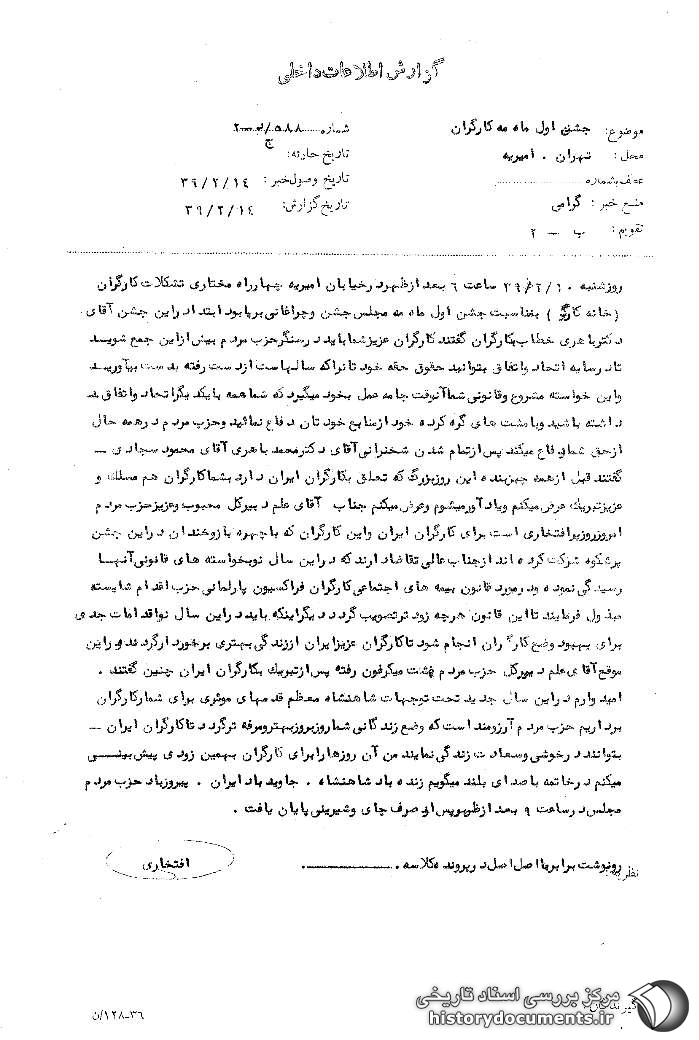 گزارش اطلاعات داخلی
موضوع: جشن اول ماه مه کارگران
شماره ۵۸۸
محل: تهران . امیریه
تاریخ حادثه:
عطف بشماره
تاریخ وصول خبر: ۳۹/۲/۱۴
منبع خبر: گرامی
تاریخ گزارش: ۳۹/۲/۱۴
تقویم: ب - ۲
روزشنبه ۳۹/۲/۱۰ ساعت ۶ بعد ازظهر در خیابان امیریه چهارراه مختاری تشکلات کارگران
(خانه کارگر) بمناسبت جشن اول ماه مه مجلس جشن وچراغانی برپا بود ابتدا در این جشن آقای
دکتر باهری خطاب بکارگران گفتند کارگران عزیز شما باید در سنگر حزب مردم بیش از این جمع شوید
تا در سایه اتحاد واتفاق بتوانید حقوق حقه خود تانرا که سالهاست از دست رفته بدست بیآورید
واین خواسته مشروع وقانونی شما آنوقت جامه عمل بخود میگیرد که شما همه با یکدیگر اتحاد واتفاق
داشته باشید وبا مشت های گره کرده خود از منافع خود تان دفاع نمائید وحزب مردم در همه حال
از حق شما دفاع میکند پس از تمام شدن سخنرانی آقای دکتر محمد باهری آقای محمود سجادی –
گفتند قبل از همه چیز بنده این روز بزرگ که تعلق بکارگران ایران دارد بشما کارگران هم مسلک و
عزیز تبریک عرض میکنم ویاد آور میشوم وعرض میکنم جناب آقای علم دبیرکل محبوب وعزیز حزب مردم
امروز روز پر افتخاری است برای کارگران ایران واین کارگران که با چهره باز وخندان در این جشن
پرشکوه شرکت کرده اند از جنابعالی تقاضا دارند که در این سال نو بخواسته های قانونی آنها
رسیدگی نموده ودر مورد قانون بیمه های اجتماعی کارگران فراکسیون پارلمانی حزب اقدام شایسته
مبذول فرمایند تا این قانون هرچه زود تر تصویب گردد دیگر اینکه باید در این سال نو اقدامات جدی
برای بهبود وضع کارگران انجام شود تا کارگران عزیز ایران از زندگی بهتری برخوردار گردند ودر این
موقع آقای علم دبیرکل حزب مردم پشت میکرفون رفته پس از تبریک بکارگران ایران چنین گفتند .
امید وارم در این سال جدید تحت توجهات شاهنشاه معظم قدمهای موثری برای شما کارگران
برداریم حزب مردم آرزومند است که وضع زندگانی شما روز بروز بهتر ومرفه تر گردد تا کارگران ایران –
بتوانند در خوشی وسعادت زندگی نمایند من آن روزها را برای کارگران بهمین زودی پیش بینی
میکنم در خاتمه با صدای بلند میگویم زنده باد شاهنشاه . جاوید باد ایران . پیروز باد حزب مردم
مجلس در ساعت ۹ بعد ازظهر پس از صرف چای وشیرینی پایان یافت .
رونوشت برابر با اصل اصل در پرونده کلاسه .
نظریه
افتخاری
۳۶-۱۲۸/ن
مرکز بررسی اسناد تاریخی
historydocuments.ir